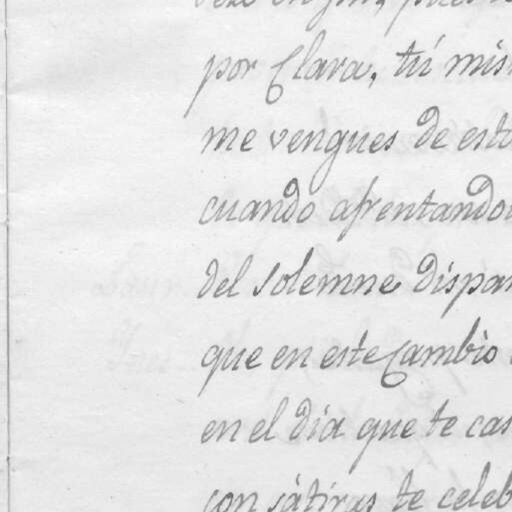 por Clara, tú mis
me vengues de esto
cuando afrentando
del solemne dispar
que en este Cambio
en el dia que te cas
con sàtiras te celeb